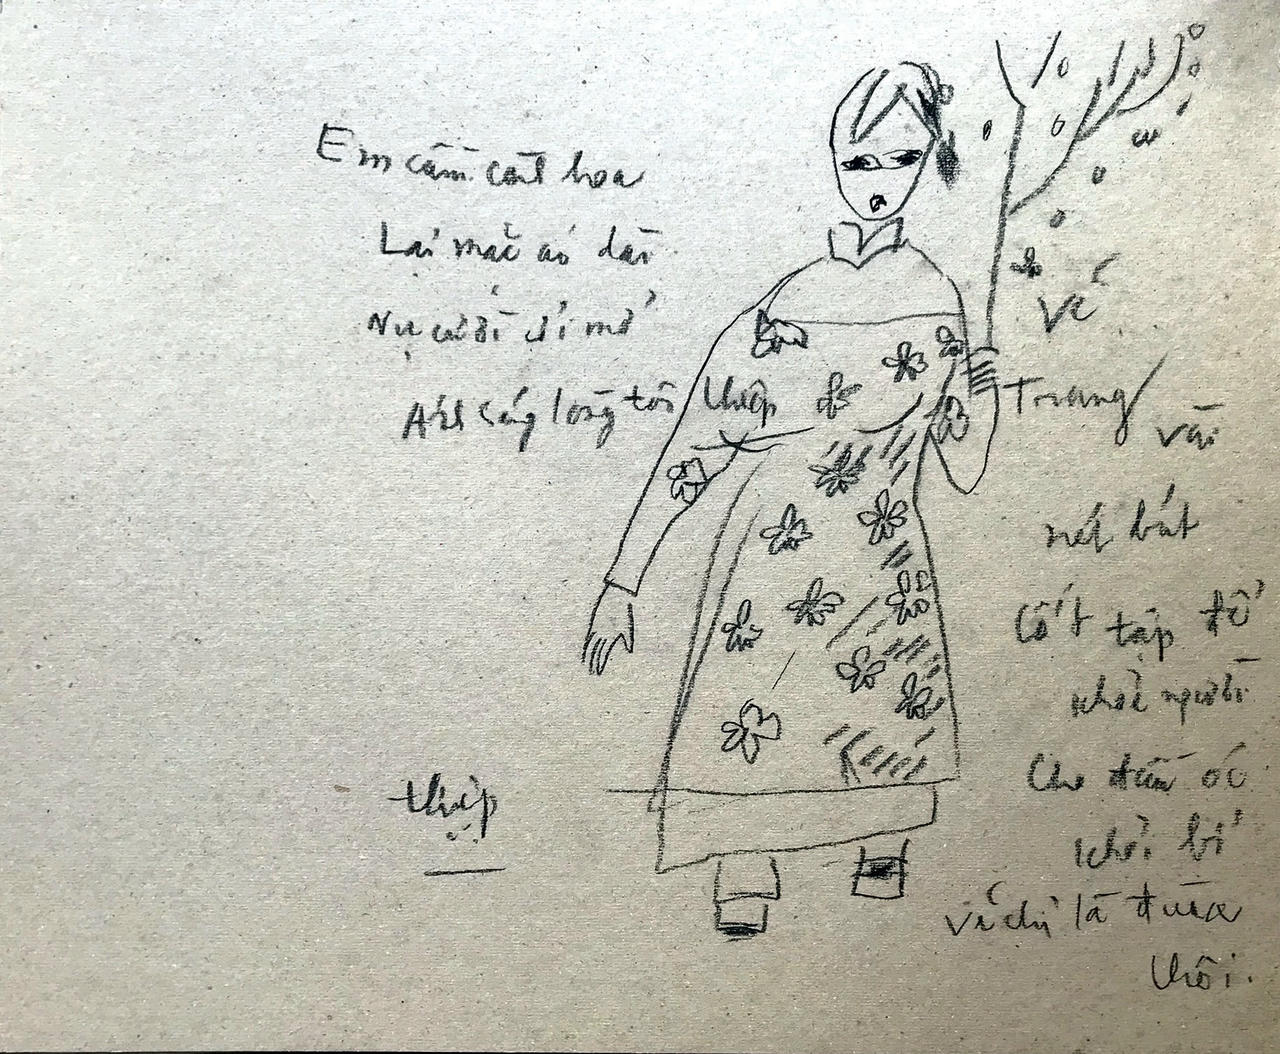 Em cầm cành hoa
Lại mặc áo dài
Nụ cười hé mở
Ánh sáng lòng tôi
Thiệp
Vẽ
Trang
vài
nét bút
Cốt tập để
khỏi người
Cho đầu óc
khỏi bí
Vẽ chỉ là đùa
thôi.
Thiệp